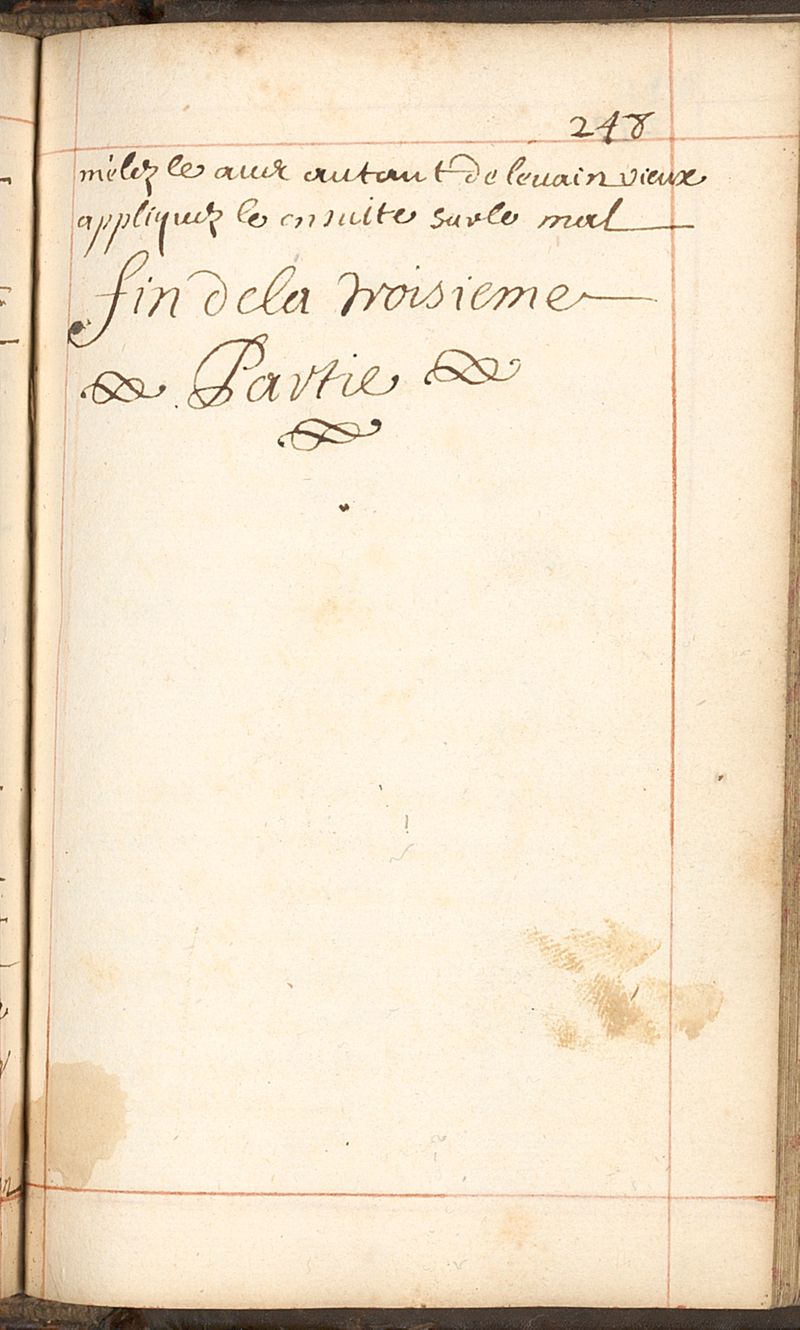 248
mélez le avec autant de levain vieux
appliquez le ensuite sur le mal
fin de la troisieme
Partie